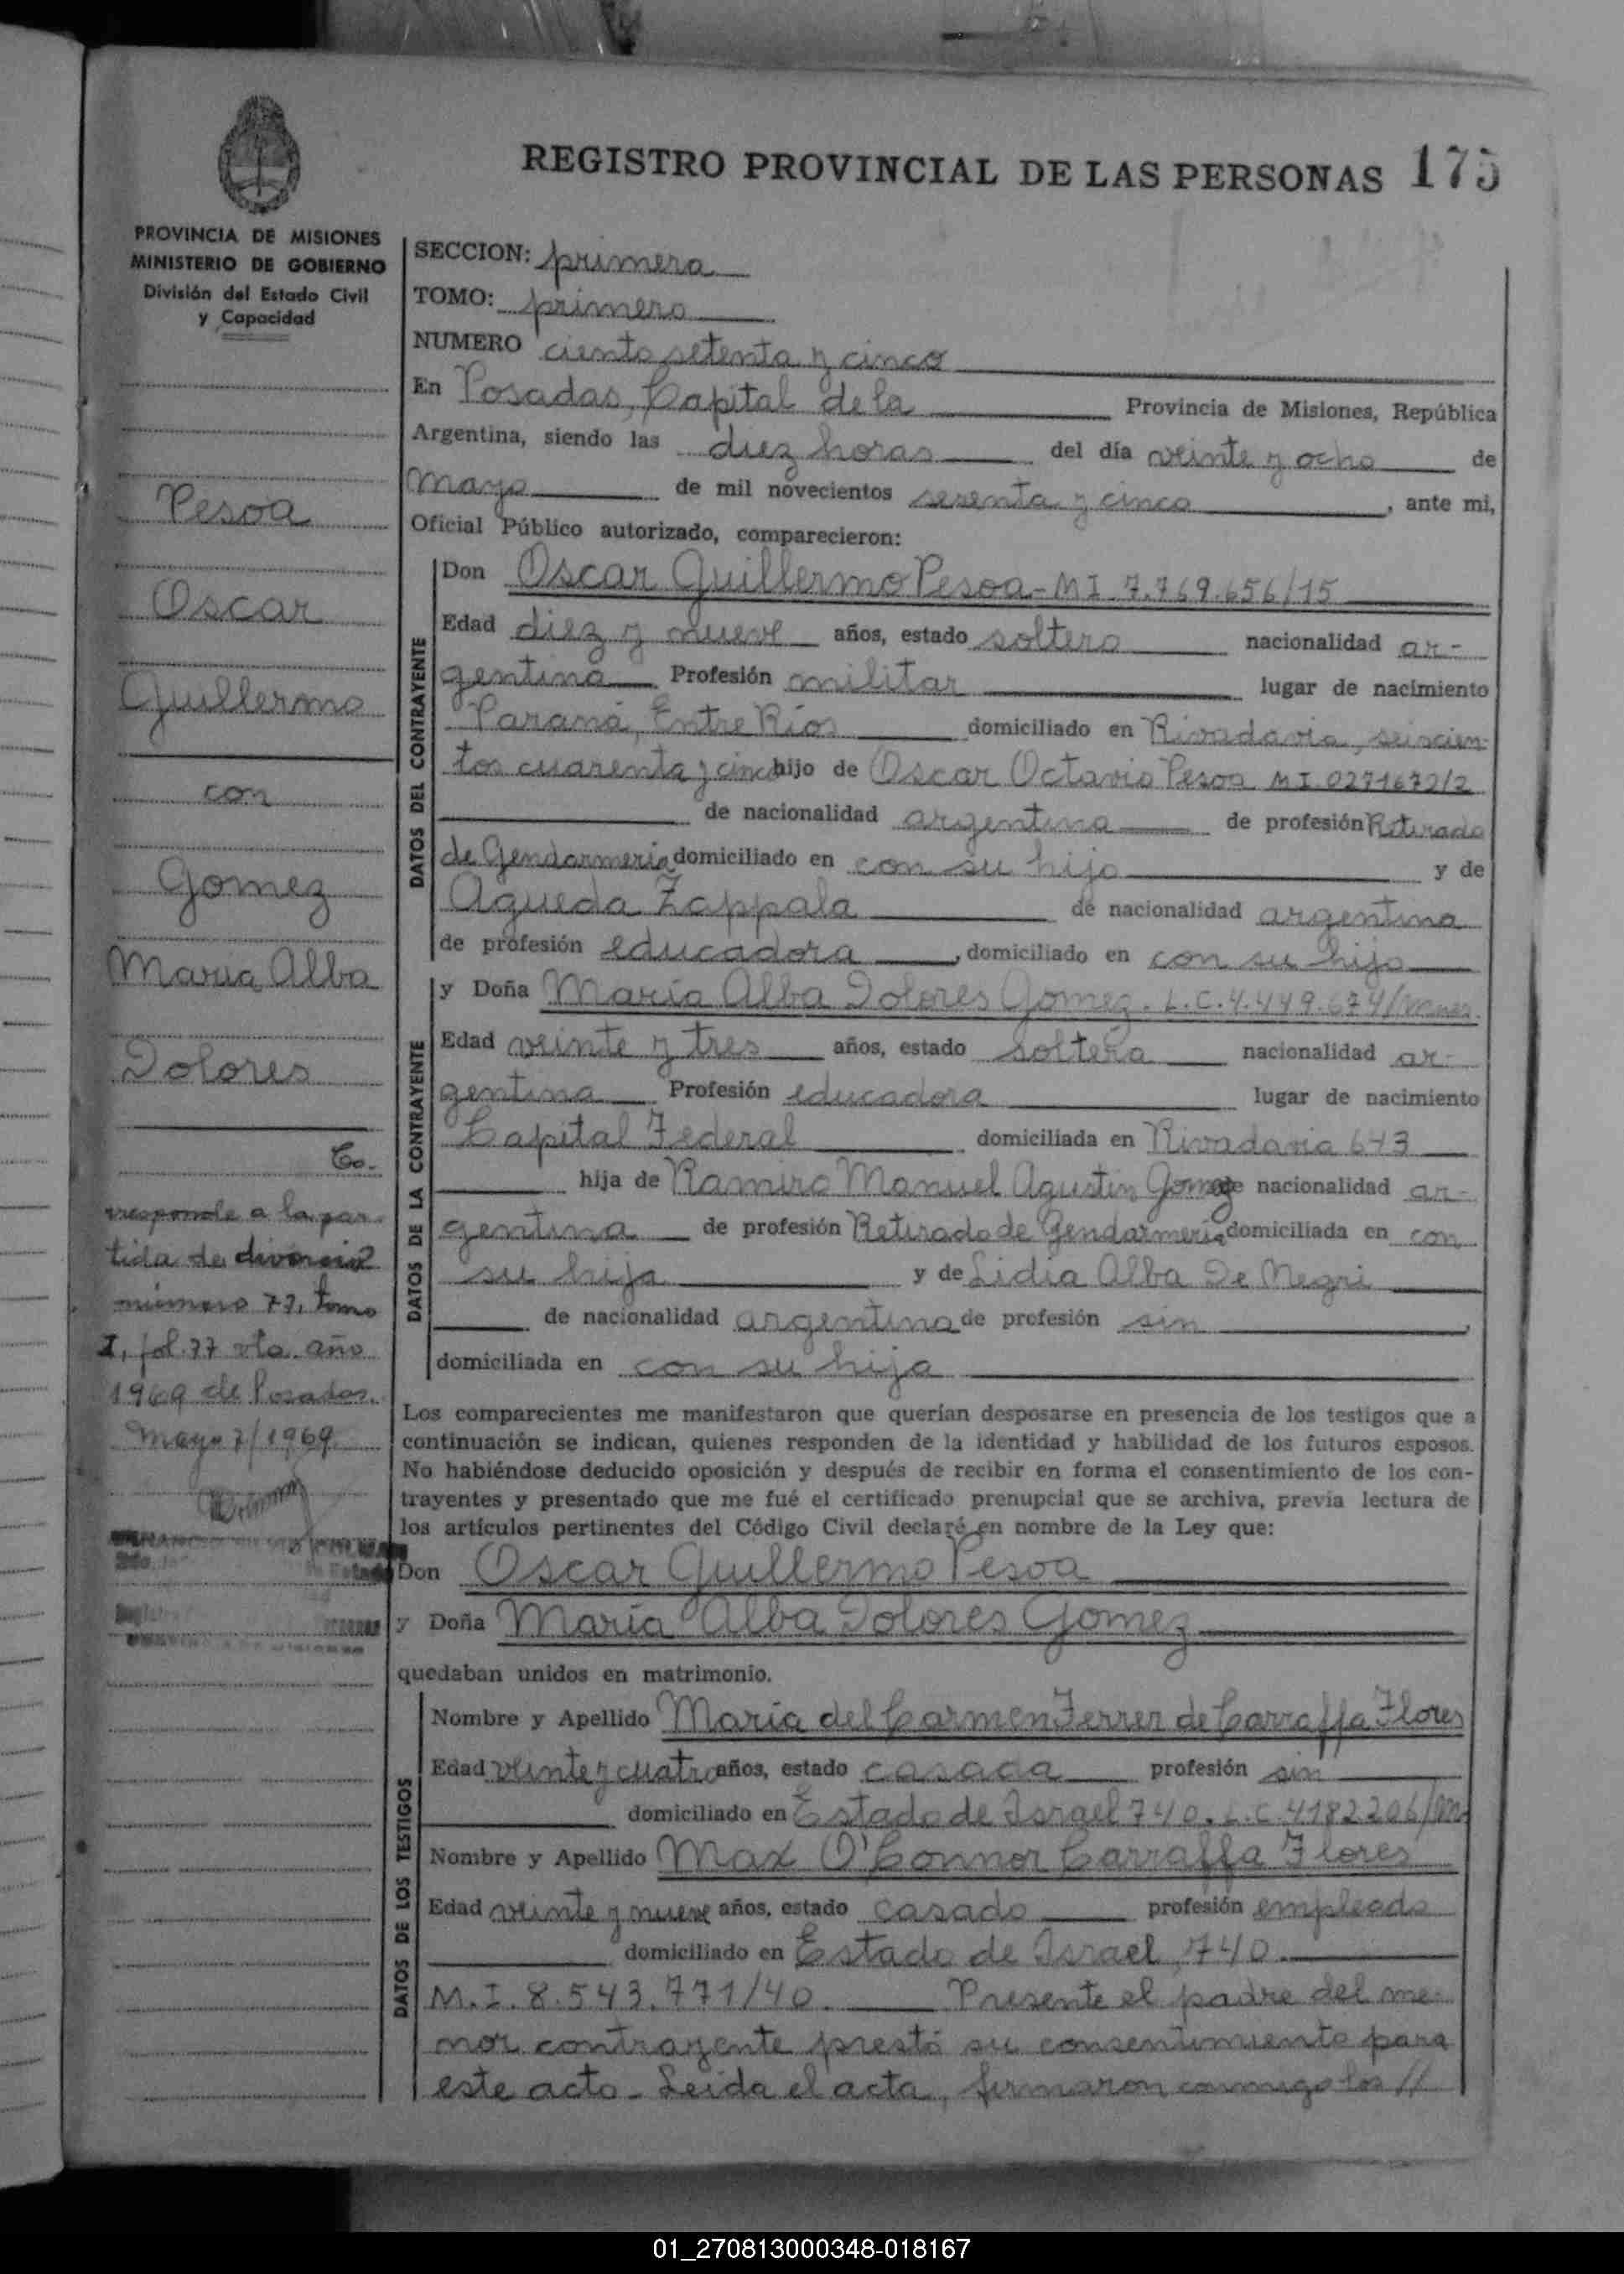 REGISTRO PROVINCIAL DE LAS PERSONAS 175
PROVINCIA DE MISIONES
MINISTERIO DE GOBIERNO
División del Estado Civil
y Capacidad
Pesoa
Oscar
Guillermo
con
Gomez
María Alba
Dolores
Co-
rresponde a la par-
tida de divorcio
número 77, tomo
I, fol. 77 vta. año
1969 de Posadas.
Mayo 7/1969
SECCION: primera
TOMO: primero
NUMERO ciento setenta y cinco
En Posadas, Capital de la Provincia de Misiones, República
Argentina, siendo las diez horas del día veinte y ocho de
mayo de mil novecientos sesenta y cinco, ante mi,
Oficial Público autorizado, comparecieron:
DATOS DEL CONTRAYENTE
Don Oscar Guillermo Pesoa - MI 7.769.656/15
Edad diez y nueve años, estado soltero nacionalidad ar-
gentina Profesión militar lugar de nacimiento
Paraná, Entre Ríos domiciliado en Rivadavia, seiscien-
tos cuarenta y cinco hijo de Oscar Octavio Pesoa MI 0271672/2
de nacionalidad argentina de profesión Retirado
de Gendarmería domiciliado en con su hijo y de
Agueda Zappala de nacionalidad argentina
de profesión educadora, domiciliado en con su hijo
DATOS DE LA CONTRAYENTE
y Doña María Alba Dolores Gomez. L.C. 4.449.674/
Edad veinte y tres años, estado soltera nacionalidad ar-
gentina Profesión educadora lugar de nacimiento
Capital Federal domiciliada en Rivadavia 643
hija de Ramiro Manuel Agustin Gomez de nacionalidad ar-
gentina de profesión Retirado de Gendarmería domiciliada en con
su hija y de Lidia Alba De Negri
de nacionalidad argentina de profesión sin,
domiciliada en con su hija
Los comparecientes me manifestaron que querían desposarse en presencia de los testigos que a
continuación se indican, quienes responden de la identidad y habilidad de los futuros esposos.
No habiéndose deducido oposición y después de recibir en forma el consentimiento de los con-
trayentes y presentado que me fué el certificado prenupcial que se archiva, previa lectura de
los artículos pertinentes del Código Civil declaré en nombre de la Ley que:
Don Oscar Guillermo Pesoa
y Doña María Alba Dolores Gomez
quedaban unidos en matrimonio.
DATOS DE LOS TESTIGOS
Nombre y Apellido María del Carmen Ferrer de Carraffa Flores
Edad veinte y cuatro años, estado casada profesión sin
domiciliado en Estado de Israel 740. L.C 4182206/
Nombre y Apellido Max O'Connor Carraffa Flores
Edad veinte y nueve años, estado casado profesión empleado
domiciliado en Estado de Israel, 740.
M.I. 8.543.771/40. Presente el padre del me-
nor contrayente prestó su consentimiento para
este acto - Leida el acta, firmaron conmigo los //
01_270813000348-018167